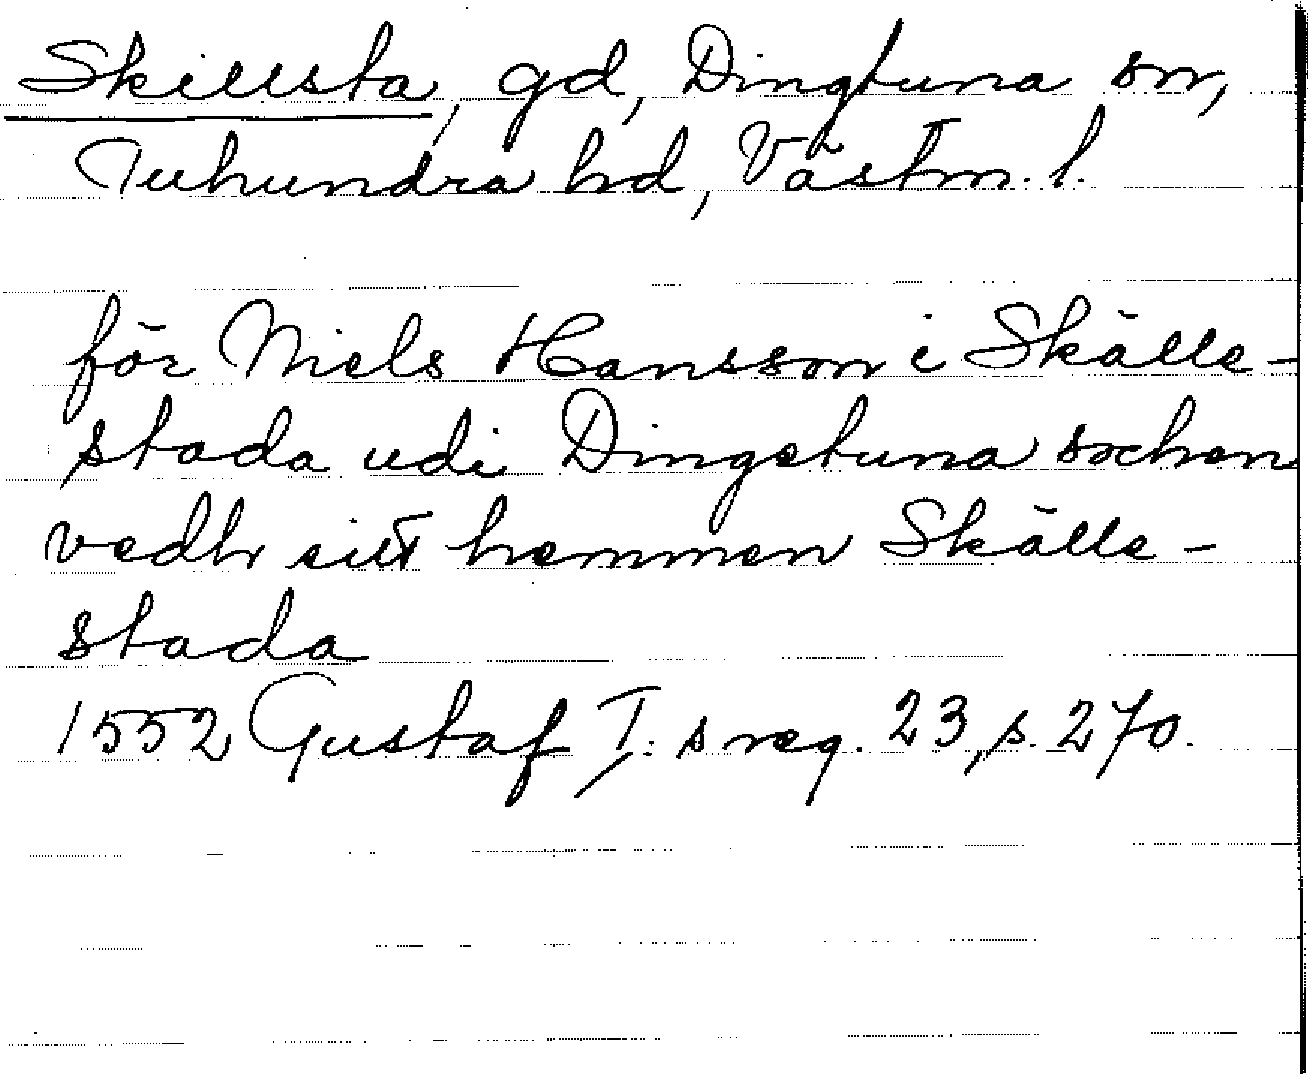 Skillsta, gd, Dingtuna sn,
Tuhundra hd, Västm. l.
för Niels Hansson i Skälle-
stada udi Dingstuna sochen
vedh sitt hemmen Skälle-
stada
1552 Gustaf I:s reg. 23, s. 270.